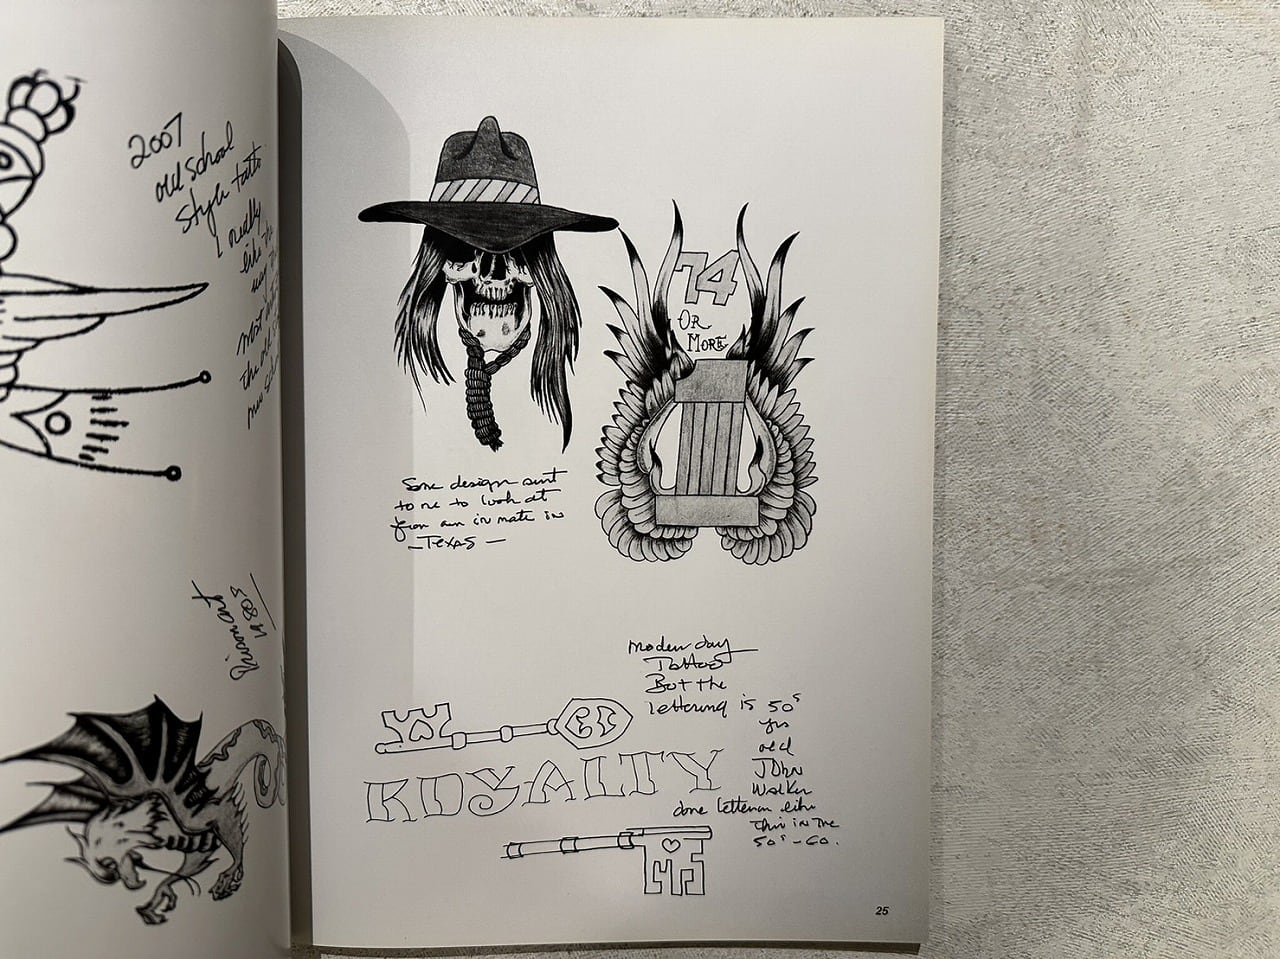 2007
old school
style tatto
I really
like the
way the
most
the old
new
Prison art
1980s
74
OR
MORE
Some design sent
to me to look at
from an in mate in
- TEXAS -
modern day
Tattoo
But the
lettering is 50s
yrs
old
John
Walker
done lettering like
this in the
50s - 60.
ROYALTY
25